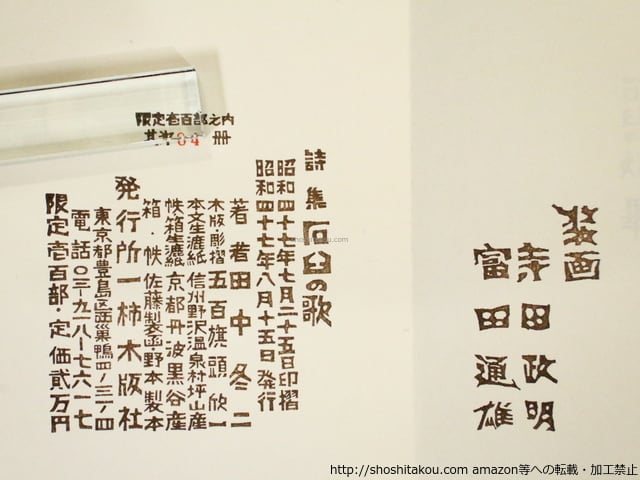 装画
寺田政明
富田通雄
限定壱百部之内
其. 64 冊
詩集 石臼の歌
昭和四十七年七月二十五日印摺
昭和四十七年八月十五日発行
著者 田中冬二
木版彫摺 五百旗頭欣一
本文生漉紙 信州野沢温泉村坪山産
帙箱生漉紙 京都丹波黒谷産
箱・帙 佐藤製函・野本製本
発行所 一柿木版社
東京都豊島区西巣鴨四ノ三ノ四
電話〇三ー九一八ー七六一七
限定壱百部・定価貳万円
shoshitakou.com
http://shoshitakou.com amazon等への転載・加工禁止